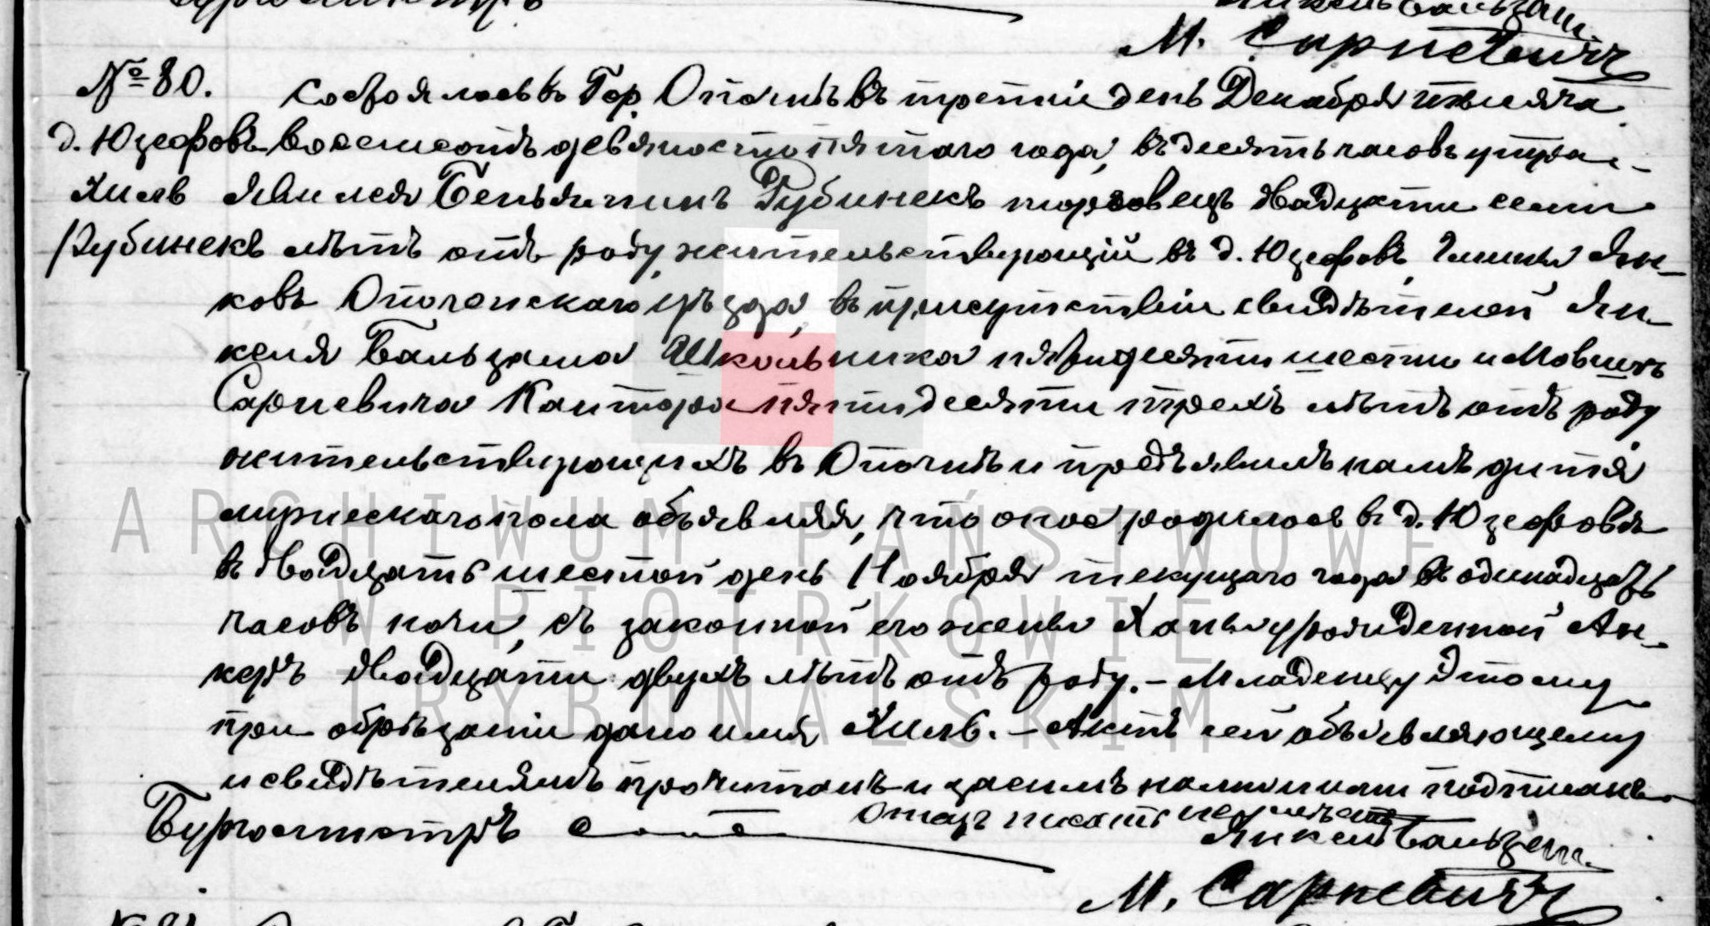 М. Сарневичъ
№ 80. Состоялось въ Гор. Опочнѣ въ третій день Декабря тысяча
д. Юзефовъ восемсотъ девяностопятаго года, въ десять часовъ утра.-
Хиль явился Беньяминъ Рубинекъ торговецъ двадцати семи
Рубинекъ лѣтъ отъ роду, жительствующій въ д. Юзефовъ, Гмины Ян-
ковъ Опочонскаго уѣзда, въ присутствіи свидѣтелей Ян-
келя Бальзама Школьника пятидесяти шести и Мовши
Сарневича Кантора пятидесяти трехъ лѣтъ отъ роду
жительствующихъ въ Опочнѣ и предъявилъ намъ дитя
мужескаго пола объявляя, что оное родилось въ д. Юзефовѣ
въ двадцать шестой день Ноября текущаго года въ одинадцать
часовъ ночи, съ законной его жены Ханы урожденной Ан-
керъ двадцати двухъ лѣтъ отъ роду. - Младенцу этому
при обрѣзаніи дано имя Хиль. - Актъ сей объявляющему
и свидѣтелямъ прочитанъ и засимъ нами подписанъ
отецъ писать не умѣетъ
Бургомистръ
Янкель Бальзам
М. Сарневичъ
ARCHIWUM PAŃSTWOWE
W PIOTRKOWIE
TRYBUNALSKIM